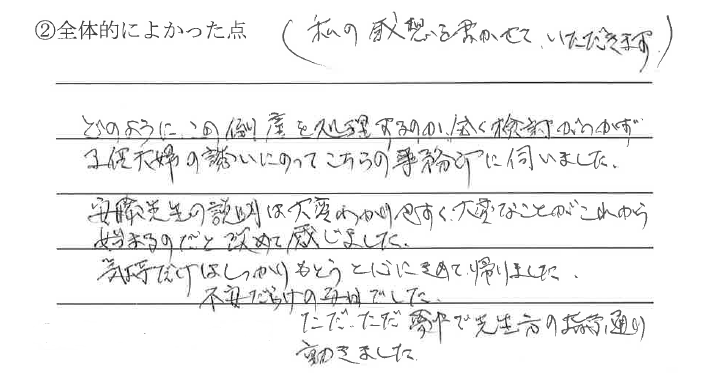 ②全体的によかった点 (私の感想を書かせていただきます)
どのように、この倒産を処理するのか、全く検討がつかず
子供夫婦の誘いにのってこちらの事務所に伺いました。
安藤先生の説明は大変わかりやすく、大変なことがこれから
始まるのだと改めて感じました。
気持だけはしっかりもとうと心にきめて帰りました。
不安だらけの毎日でした。
ただ、ただ夢中で先生方の指示通り
動きました。